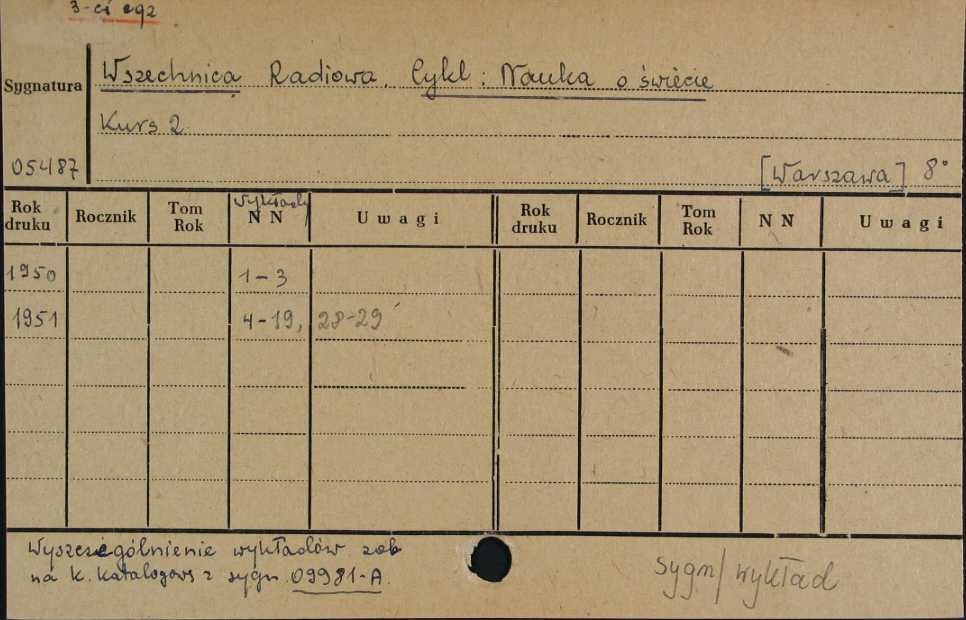 3-ci egz
Wszechnica Radiowa. Cykl: Nauka o świecie
Sygnatura
Kurs 2
05487
[Warszawa] 8°
Rok druku Rocznik Tom Rok wykłady N N Uwagi Rok druku Rocznik Tom Rok N N Uwagi
1950 1-3
1951 4-19, 28-29
Wyszczególnienie wykładów zob
na k. katalogow z sygn. 09981-A.
sygn/wykład